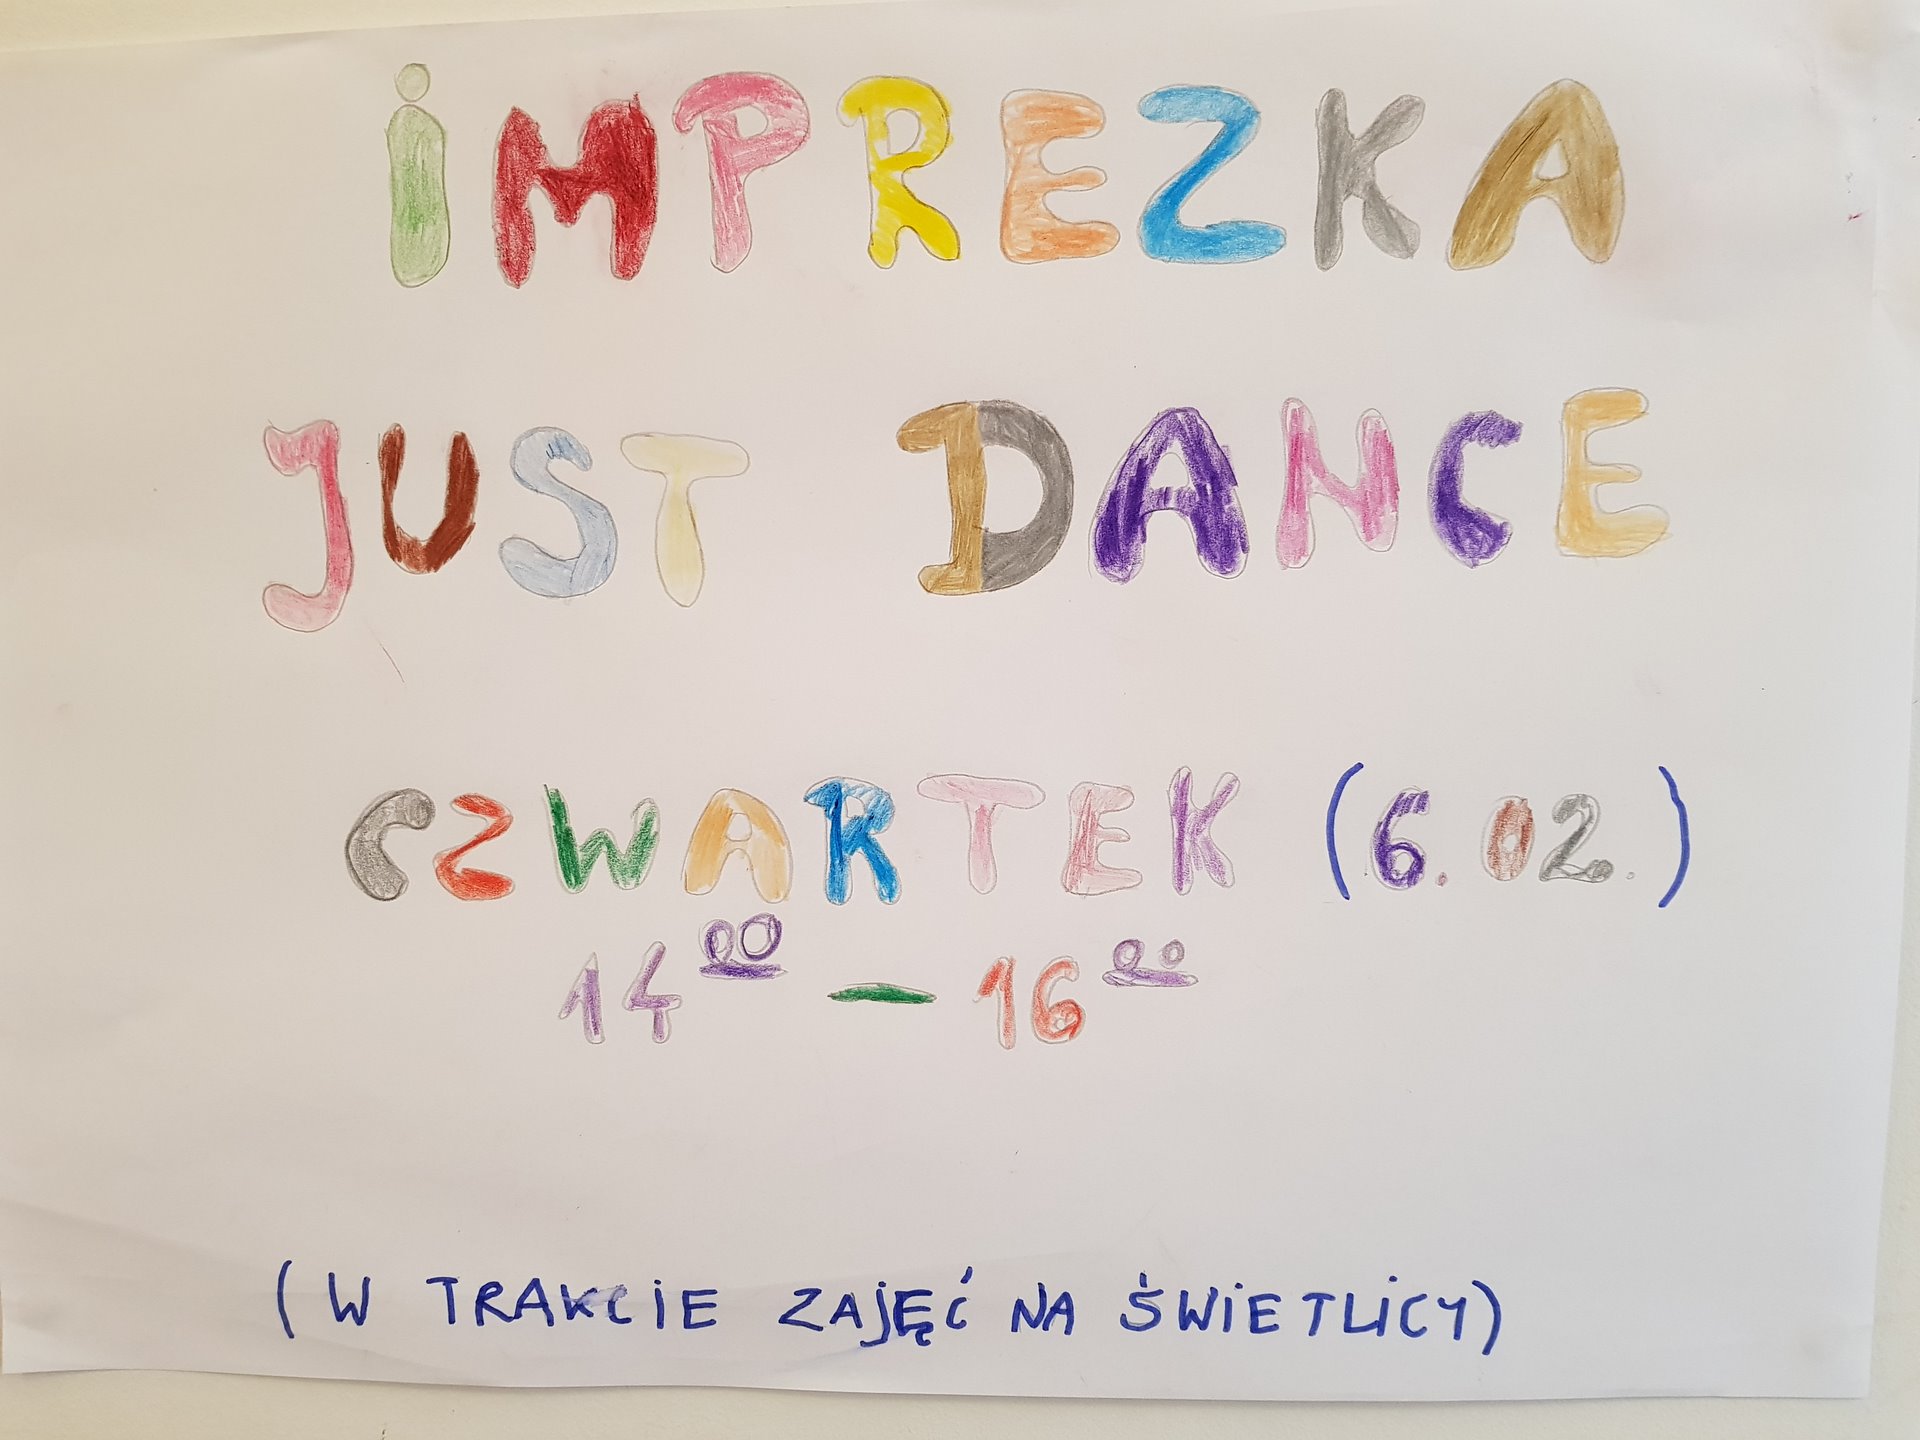 iMPREZKA
JUST DANCE
CZWARTEK (6.02.)
14⁰⁰ – 16⁰⁰
(W TRAKCiE ZAjĘĆ NA ŚWiETLiCY)